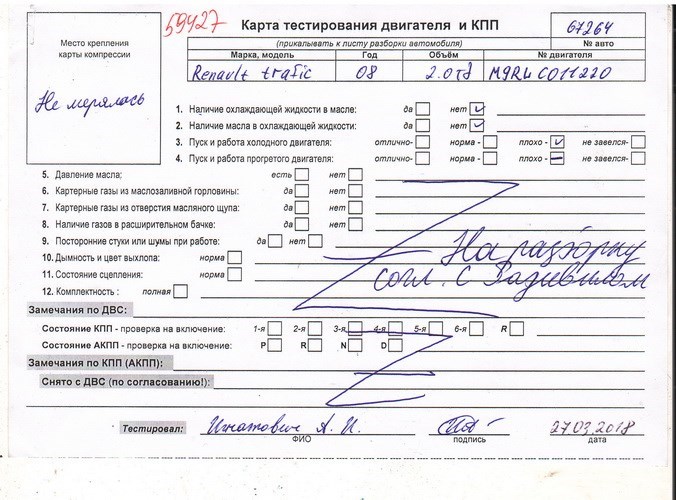 59427
Карта тестирования двигателя и КПП
67264
(прикалывать к листу разборки автомобиля)
№ авто
Место крепления
карты компрессии
Не мерялась
Марка, модель Год Объём № двигателя
Renault trafic 08 2.0td M9R4 C011220
1. Наличие охлаждающей жидкости в масле: да нет
2. Наличие масла в охлаждающей жидкости: да нет
3. Пуск и работа холодного двигателя: отлично- норма - плохо - не завелся-
4. Пуск и работа прогретого двигателя: отлично- норма - плохо - не завелся-
5. Давление масла; есть нет
6. Картерные газы из маслозаливной горловины: да нет
7. Картерные газы из отверстия масляного щупа: да нет
8. Наличие газов в расширительном бачке: да нет
9. Посторонние стуки или шумы при работе: да нет
10. Дымность и цвет выхлопа: норма
На разборку
11. Состояние сцепления: норма
согл. с Радивилом
12. Комплектность: полная
Замечания по ДВС:
Состояние КПП - проверка на включение: 1-я 2-я 3-я 4-я 5-я 6-я R
Состояние АКПП - проверка на включение: P R N D
Замечания по КПП (АКПП):
Снято с ДВС (по согласованию!):
Тестировал: Игнатович А. И. 27.03.2018
ФИО подпись дата